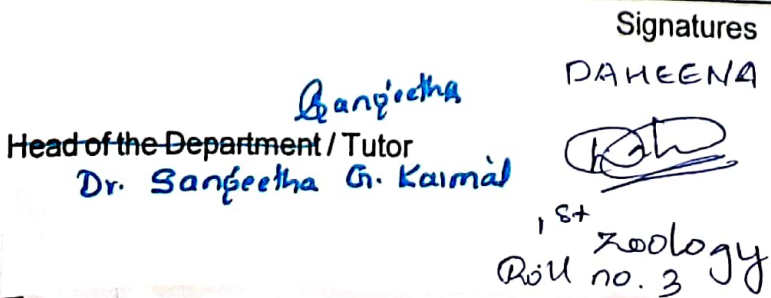 Signatures
DAHEENA
Sangeetha
Head of the Department / Tutor
Dr. Sangeetha G. Kaimal
1st Zoology
Roll no. 3